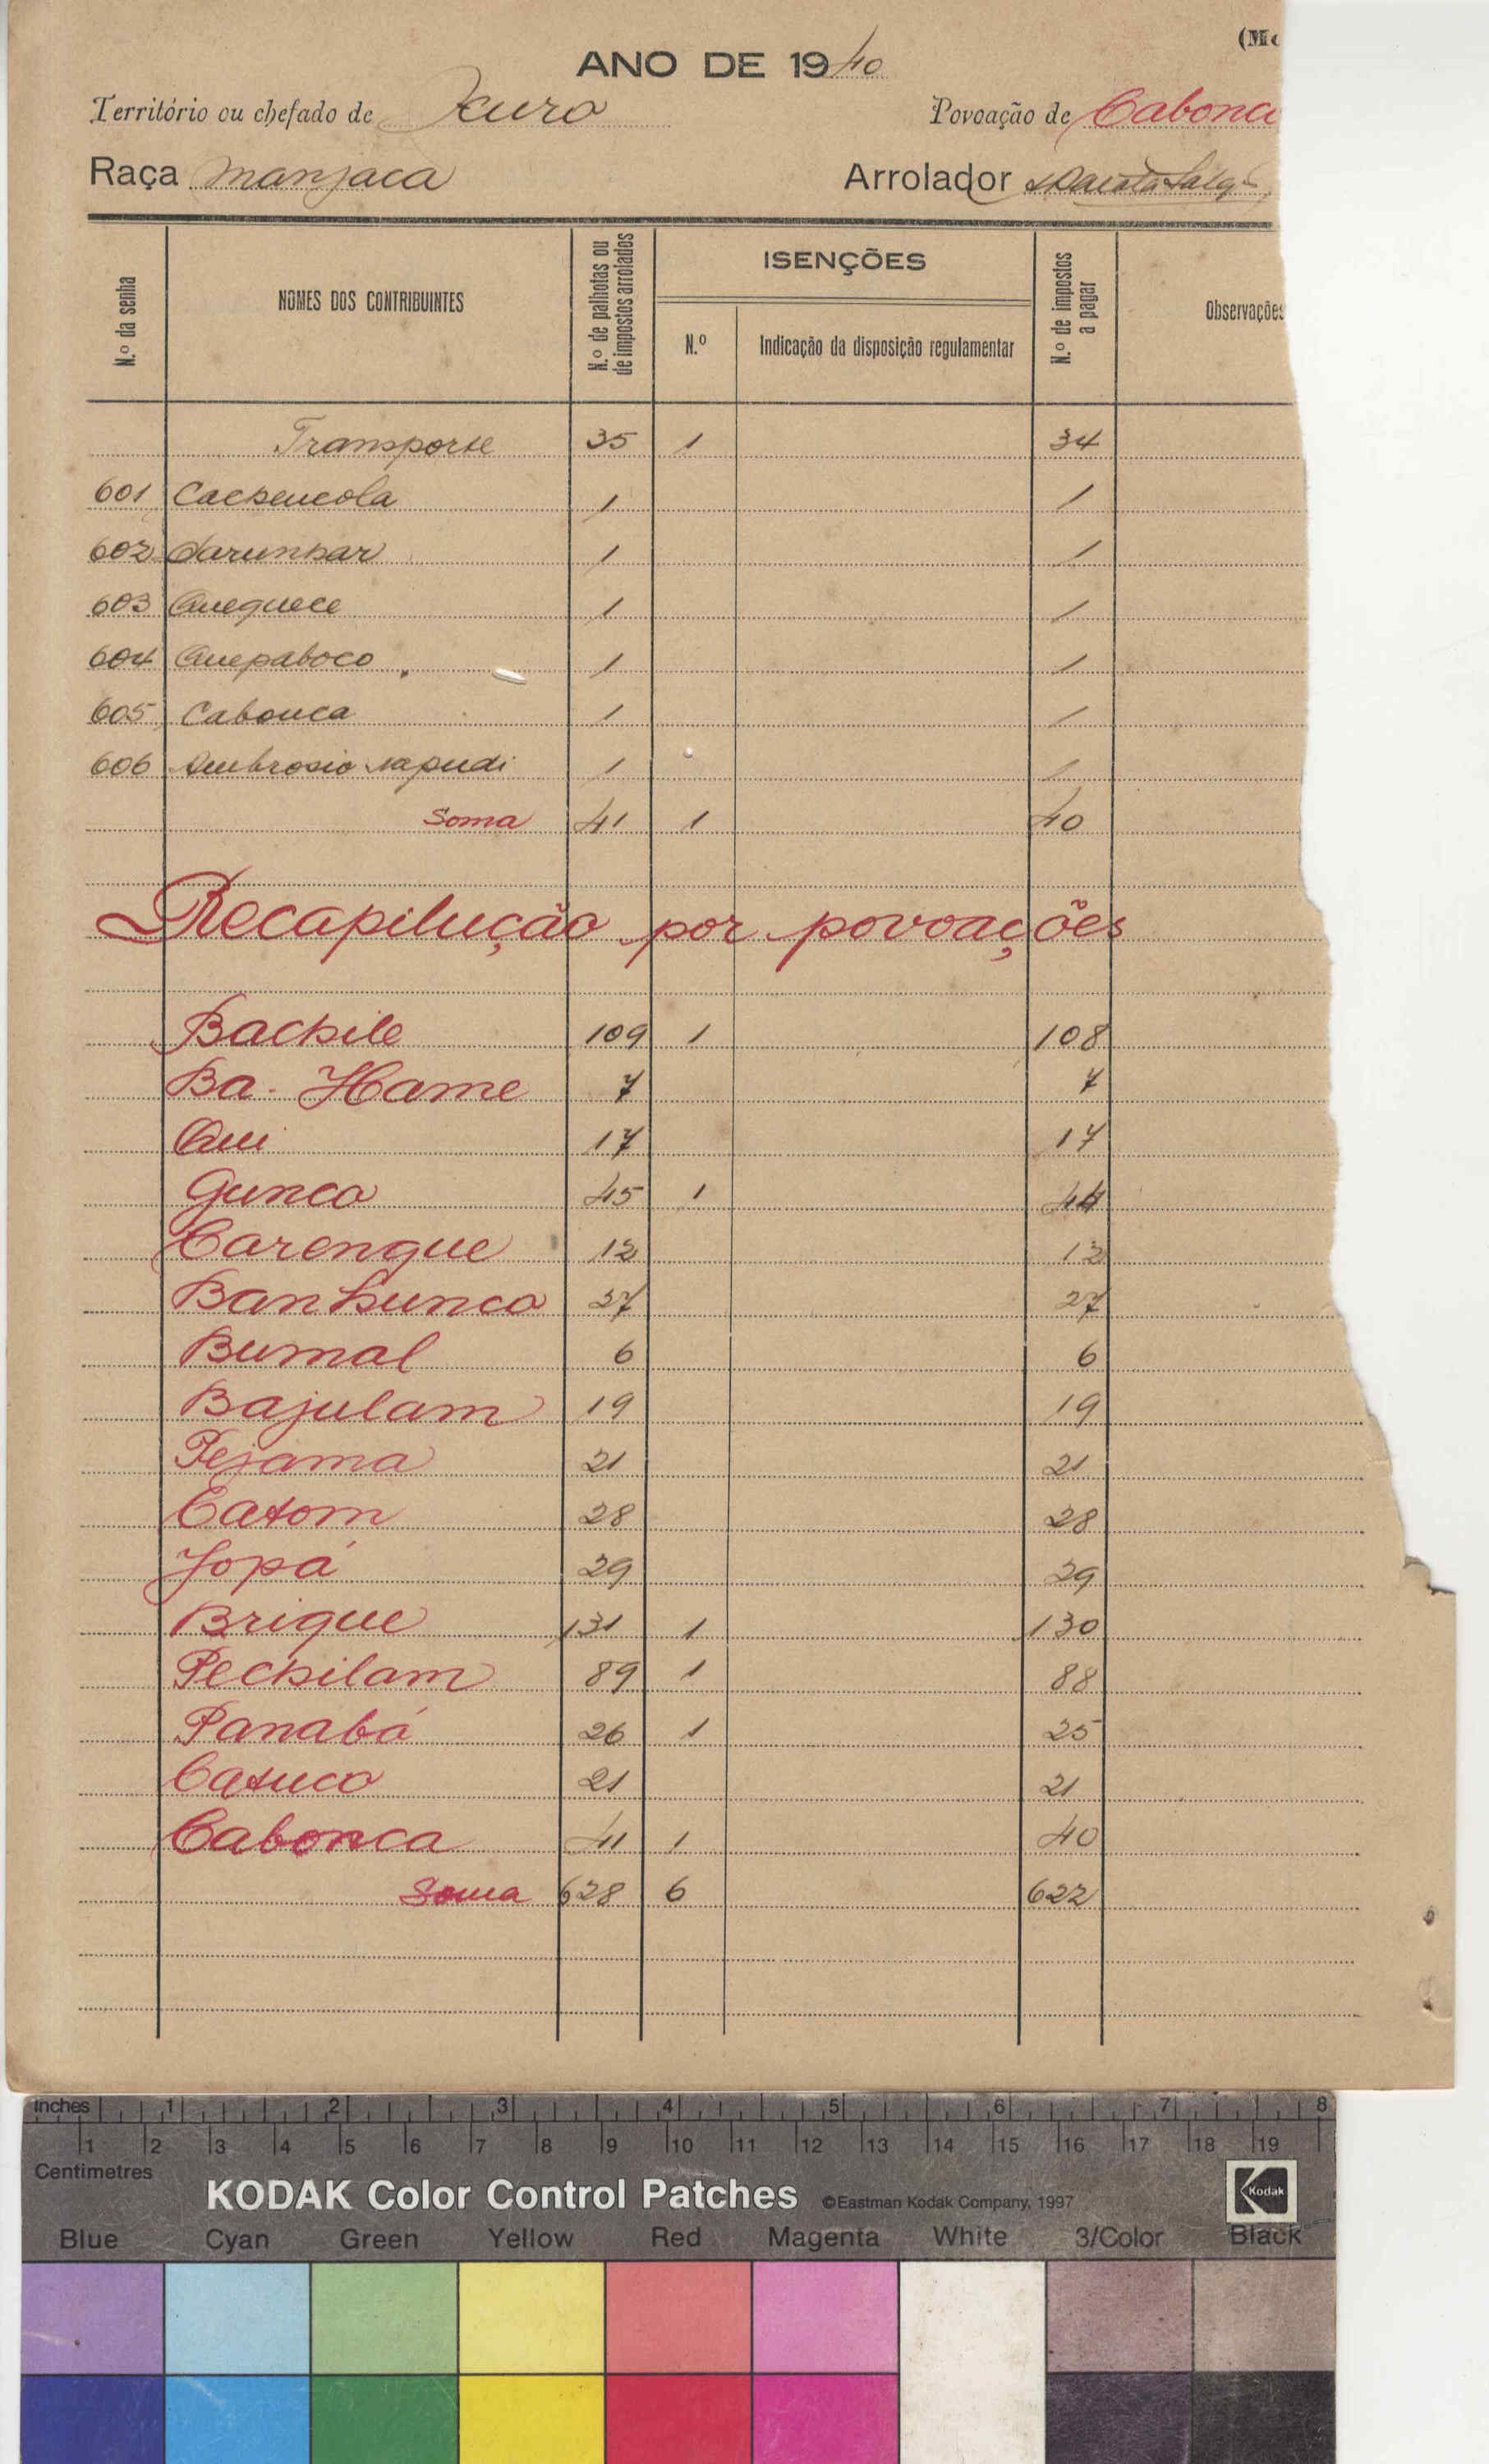 (Mo
ANO DE 1940
Território ou chefado de Xuro Povoação de Cabonca
Raça Manjaca Arrolador
N.º da senha NOMES DOS CONTRIBUINTES N.º de palhotas ou de impostos arrolados ISENÇÕES N.º Indicação da disposição regulamentar N.º de impostos a pagar Observações
Transporte 35 1 34
601 1 1
602 1 1
603 Quequece 1 1
604 Quepaboco 1 1
605 Cabouca 1 1
606 Ambrosio Napudi 1 1
Soma 41 1 40
Recapilução por povoações
Bachile 109 1 108
Ba-Hame 7 7
Qui 17 17
Gunco 45 1 44
Carenque 12 12
Banhunco 27 27
Bumal 6 6
Bajulam 19 19
Pejama 21 21
Catom 28 28
Jopá 29 29
Brique 131 1 130
Pechilam 89 1 88
Panabá 26 1 25
Catuco 21 21
Cabonca 41 1 40
Soma 628 6 622
inches 1 2 3 4 5 6 7 8
1 2 3 4 5 6 7 8 9 10 11 12 13 14 15 16 17 18 19
Centimetres
KODAK Color Control Patches ©Eastman Kodak Company, 1997 Kodak
Blue Cyan Green Yellow Red Magenta White 3/Color Black